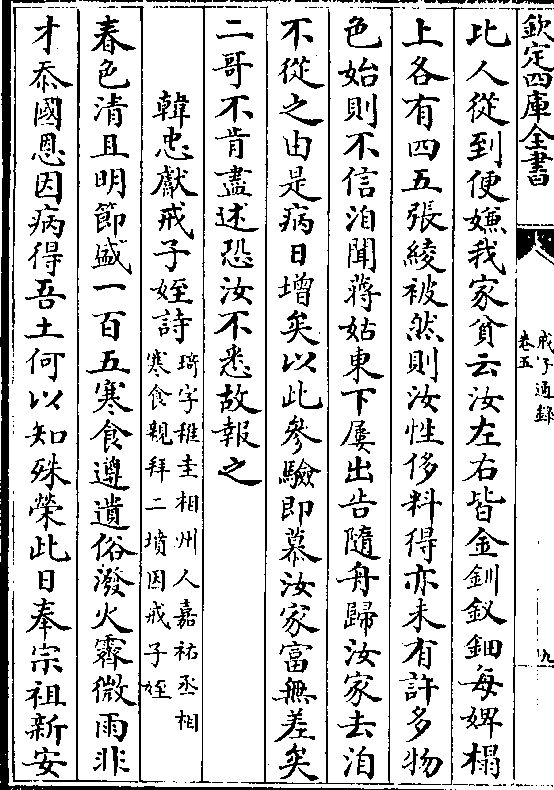 欽定四庫全書
戒子通録
卷五
九
比人從到便嫌我家貧云汝左右皆金釧釵鈿每婢榻
上各有四五張綾被然則汝性侈料得亦未有許多物
色始則不信洎聞蔣姑東下屢出告隨舟歸汝家去洎
不從之由是病日增矣以此參驗即慕汝家富無差矣
二哥不肯盡述恐汝不悉故報之
韓忠獻戒子姪詩
琦字稚圭相州人嘉祐丞相
寒食親拜二墳因戒子姪
春色清且明節盛一百五寒食遵遺俗潑火霽微雨非
才忝國恩因病得吾土何以知殊榮此日奉宗祖新安